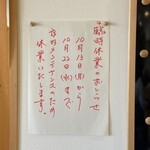 臨時休業のおしらせ
10月13日(月)から
10月22日(水)まで
店内メンテナンスのため
休業いたします。